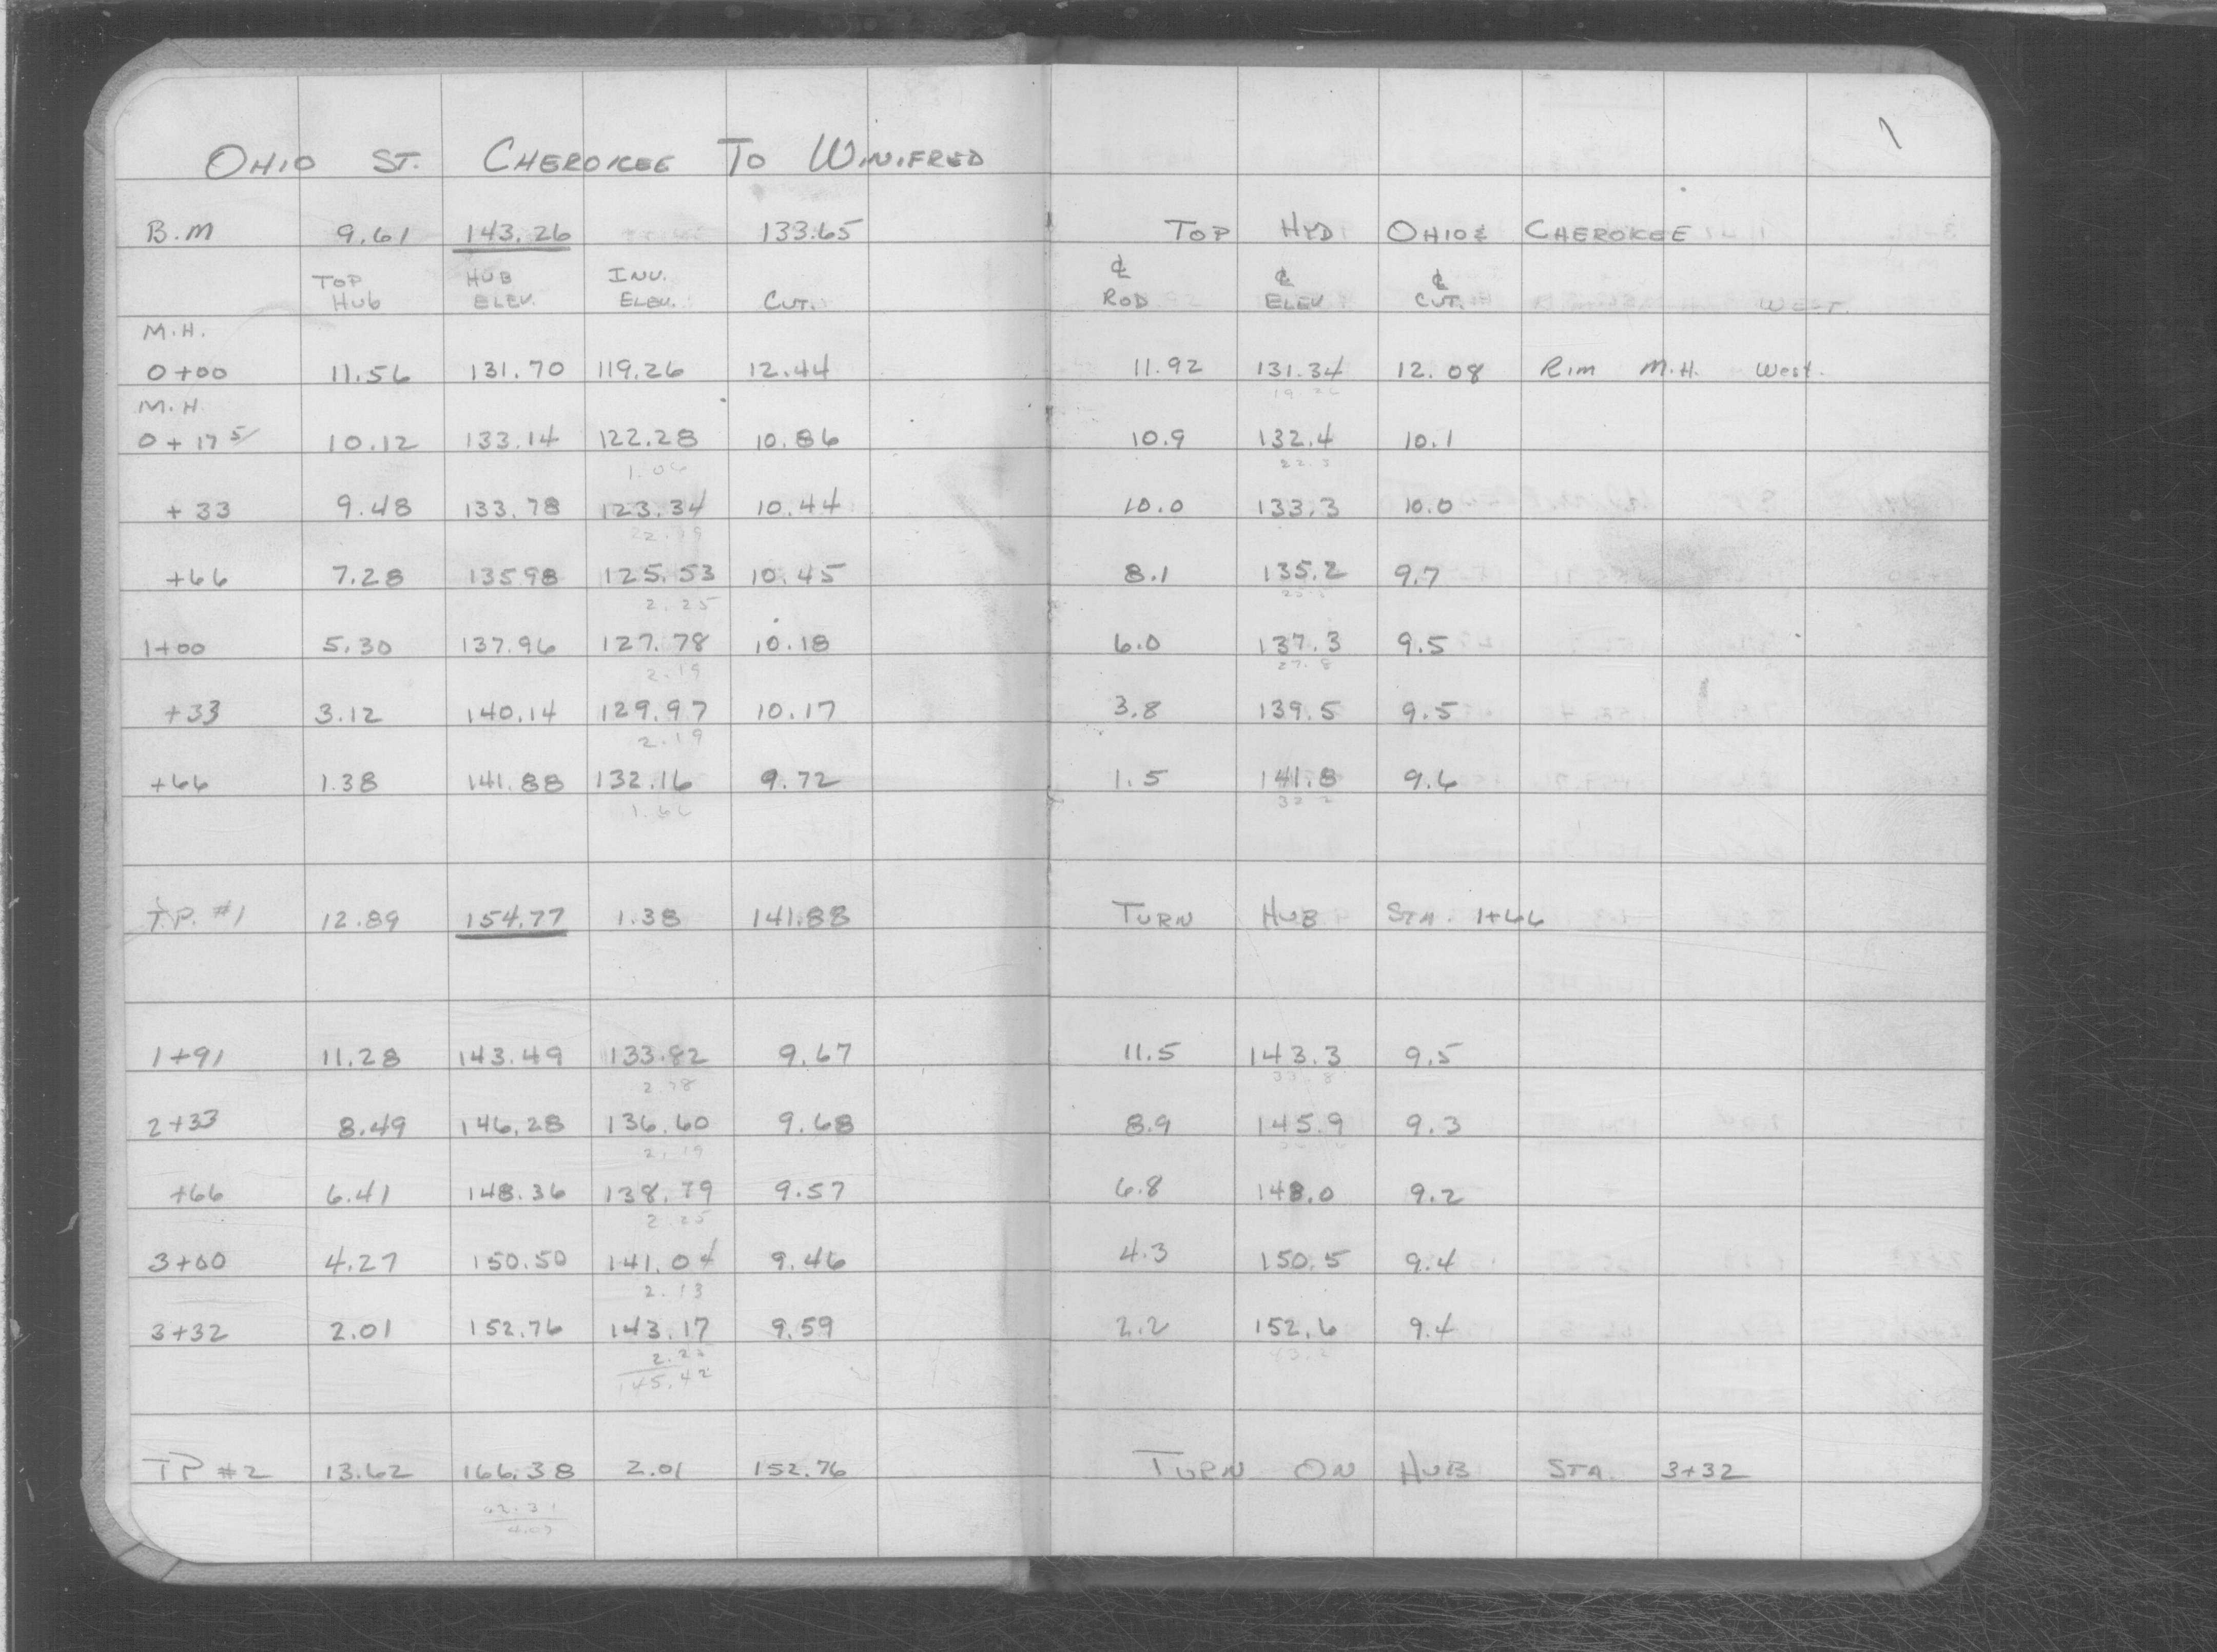 1
OHIO ST. CHEROKEE TO WINIFRED
B.M 9.61 143.26 133.65 TOP HYD OHIO & CHEROKEE
TOP HUB INV. ℄ ℄ ℄
HUB ELEV. ELEV. CUT. ROD ELEV CUT. WEST.
M.H.
0+00 11.56 131.70 119.26 12.44 11.92 131.34 12.08 Rim M.H. West.
M.H. 19.26
0+17 5/ 10.12 133.14 122.28 10.86 10.9 132.4 10.1
1.06 22.3
+33 9.48 133.78 123.34 10.44 10.0 133.3 10.0
22.19
+66 7.28 135.98 125.53 10.45 8.1 135.2 9.7
2.25
1+00 5.30 137.96 127.78 10.18 6.0 137.3 9.5
2.19 27.8
+33 3.12 140.14 129.97 10.17 3.8 139.5 9.5
2.19
+66 1.38 141.88 132.16 9.72 1.5 141.8 9.6
1.66 32.2
T.P. #1 12.89 154.77 1.38 141.88 TURN HUB STA. 1+66
1+91 11.28 143.49 133.82 9.67 11.5 143.3 9.5
2.78 33.8
2+33 8.49 146.28 136.60 9.68 8.9 145.9 9.3
2.19
+66 6.41 148.36 138.79 9.57 6.8 148.0 9.2
2.25
3+00 4.27 150.50 141.04 9.46 4.3 150.5 9.4
2.13
3+32 2.01 152.76 143.17 9.59 2.2 152.6 9.4
43.2
145.42
TP #2 13.62 166.38 2.01 152.76 TURN ON HUB STA. 3+32
62.31
4.07